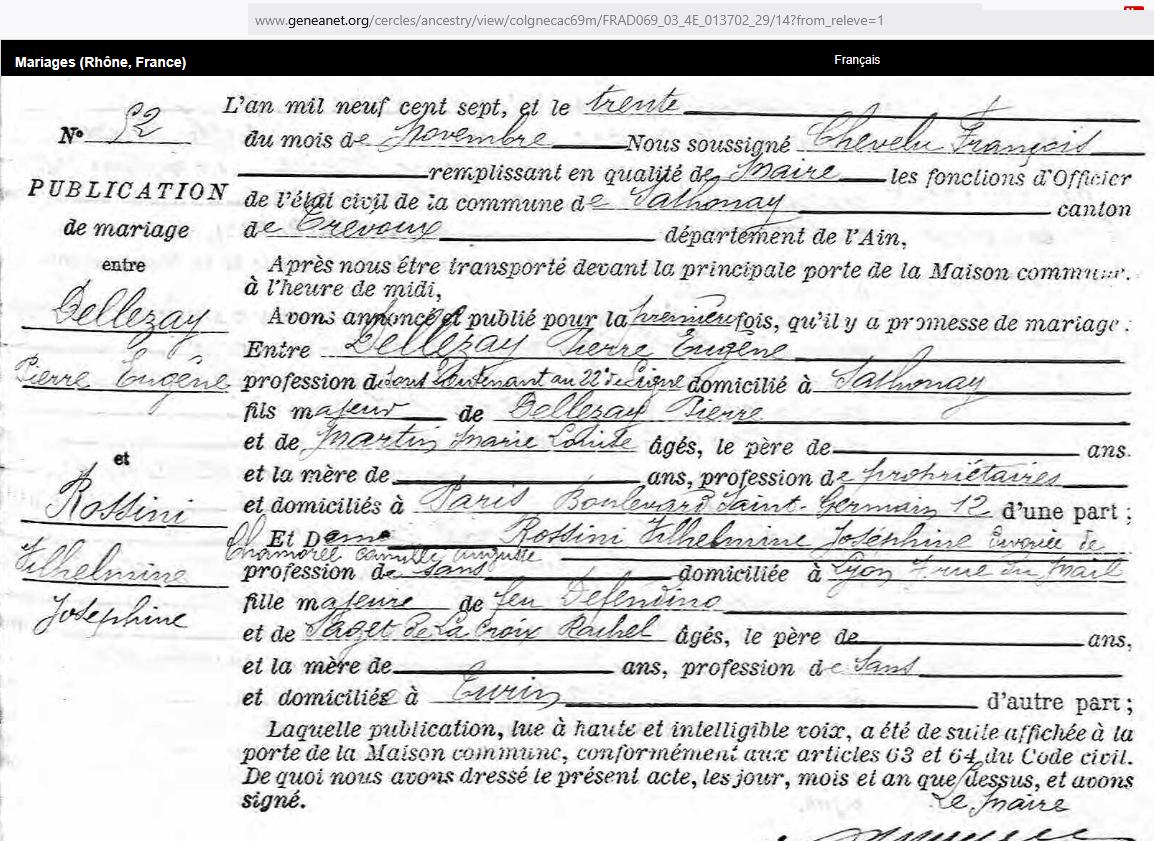 www.geneanet.org/cercles/ancestry/view/colgnecac69m/FRAD069_03_4E_013702_29/14?from_releve=1
Mariages (Rhône, France)
Français
N° 52
PUBLICATION
de mariage
entre
Dellezay
Pierre Eugène
et
Rossini
Filhelmine
Josephine
L'an mil neuf cent sept, et le trente
du mois de Novembre Nous soussigné Chevelu François
remplissant en qualité de Maire les fonctions d'Officier
de l'état civil de la commune de Sathonay canton
de Trévoux département de l'Ain,
Après nous être transporté devant la principale porte de la Maison commune.
à l'heure de midi,
Avons annoncé et publié pour la première fois, qu'il y a promesse de mariage :
Entre Dellezay Pierre Eugène
profession de sous Lieutenant au 22e de Ligne domicilié à Sathonay
fils majeur de Dellezay Pierre
et de Martin Marie Louise âgés, le père de ans.
et la mère de ans, profession de propriétaires
et domiciliés à Paris Boulevard Saint-Germain 12 d'une part ;
Et Dame Rossini Filhelmine Joséphine divorcée de
Camille Auguste
profession de sans domiciliée à Lyon 7 rue du Mail
fille majeure de feu Defendino
et de Saget de La Croix Rachel âgés, le père de ans,
et la mère de ans, profession de Sans
et domiciliée à Turin d'autre part ;
Laquelle publication, lue à haute et intelligible voix, a été de suite affichée à la
porte de la Maison commune, conformément aux articles 63 et 64 du Code civil.
De quoi nous avons dressé le présent acte, les jour, mois et an que dessus, et avons
signé.
Le Maire